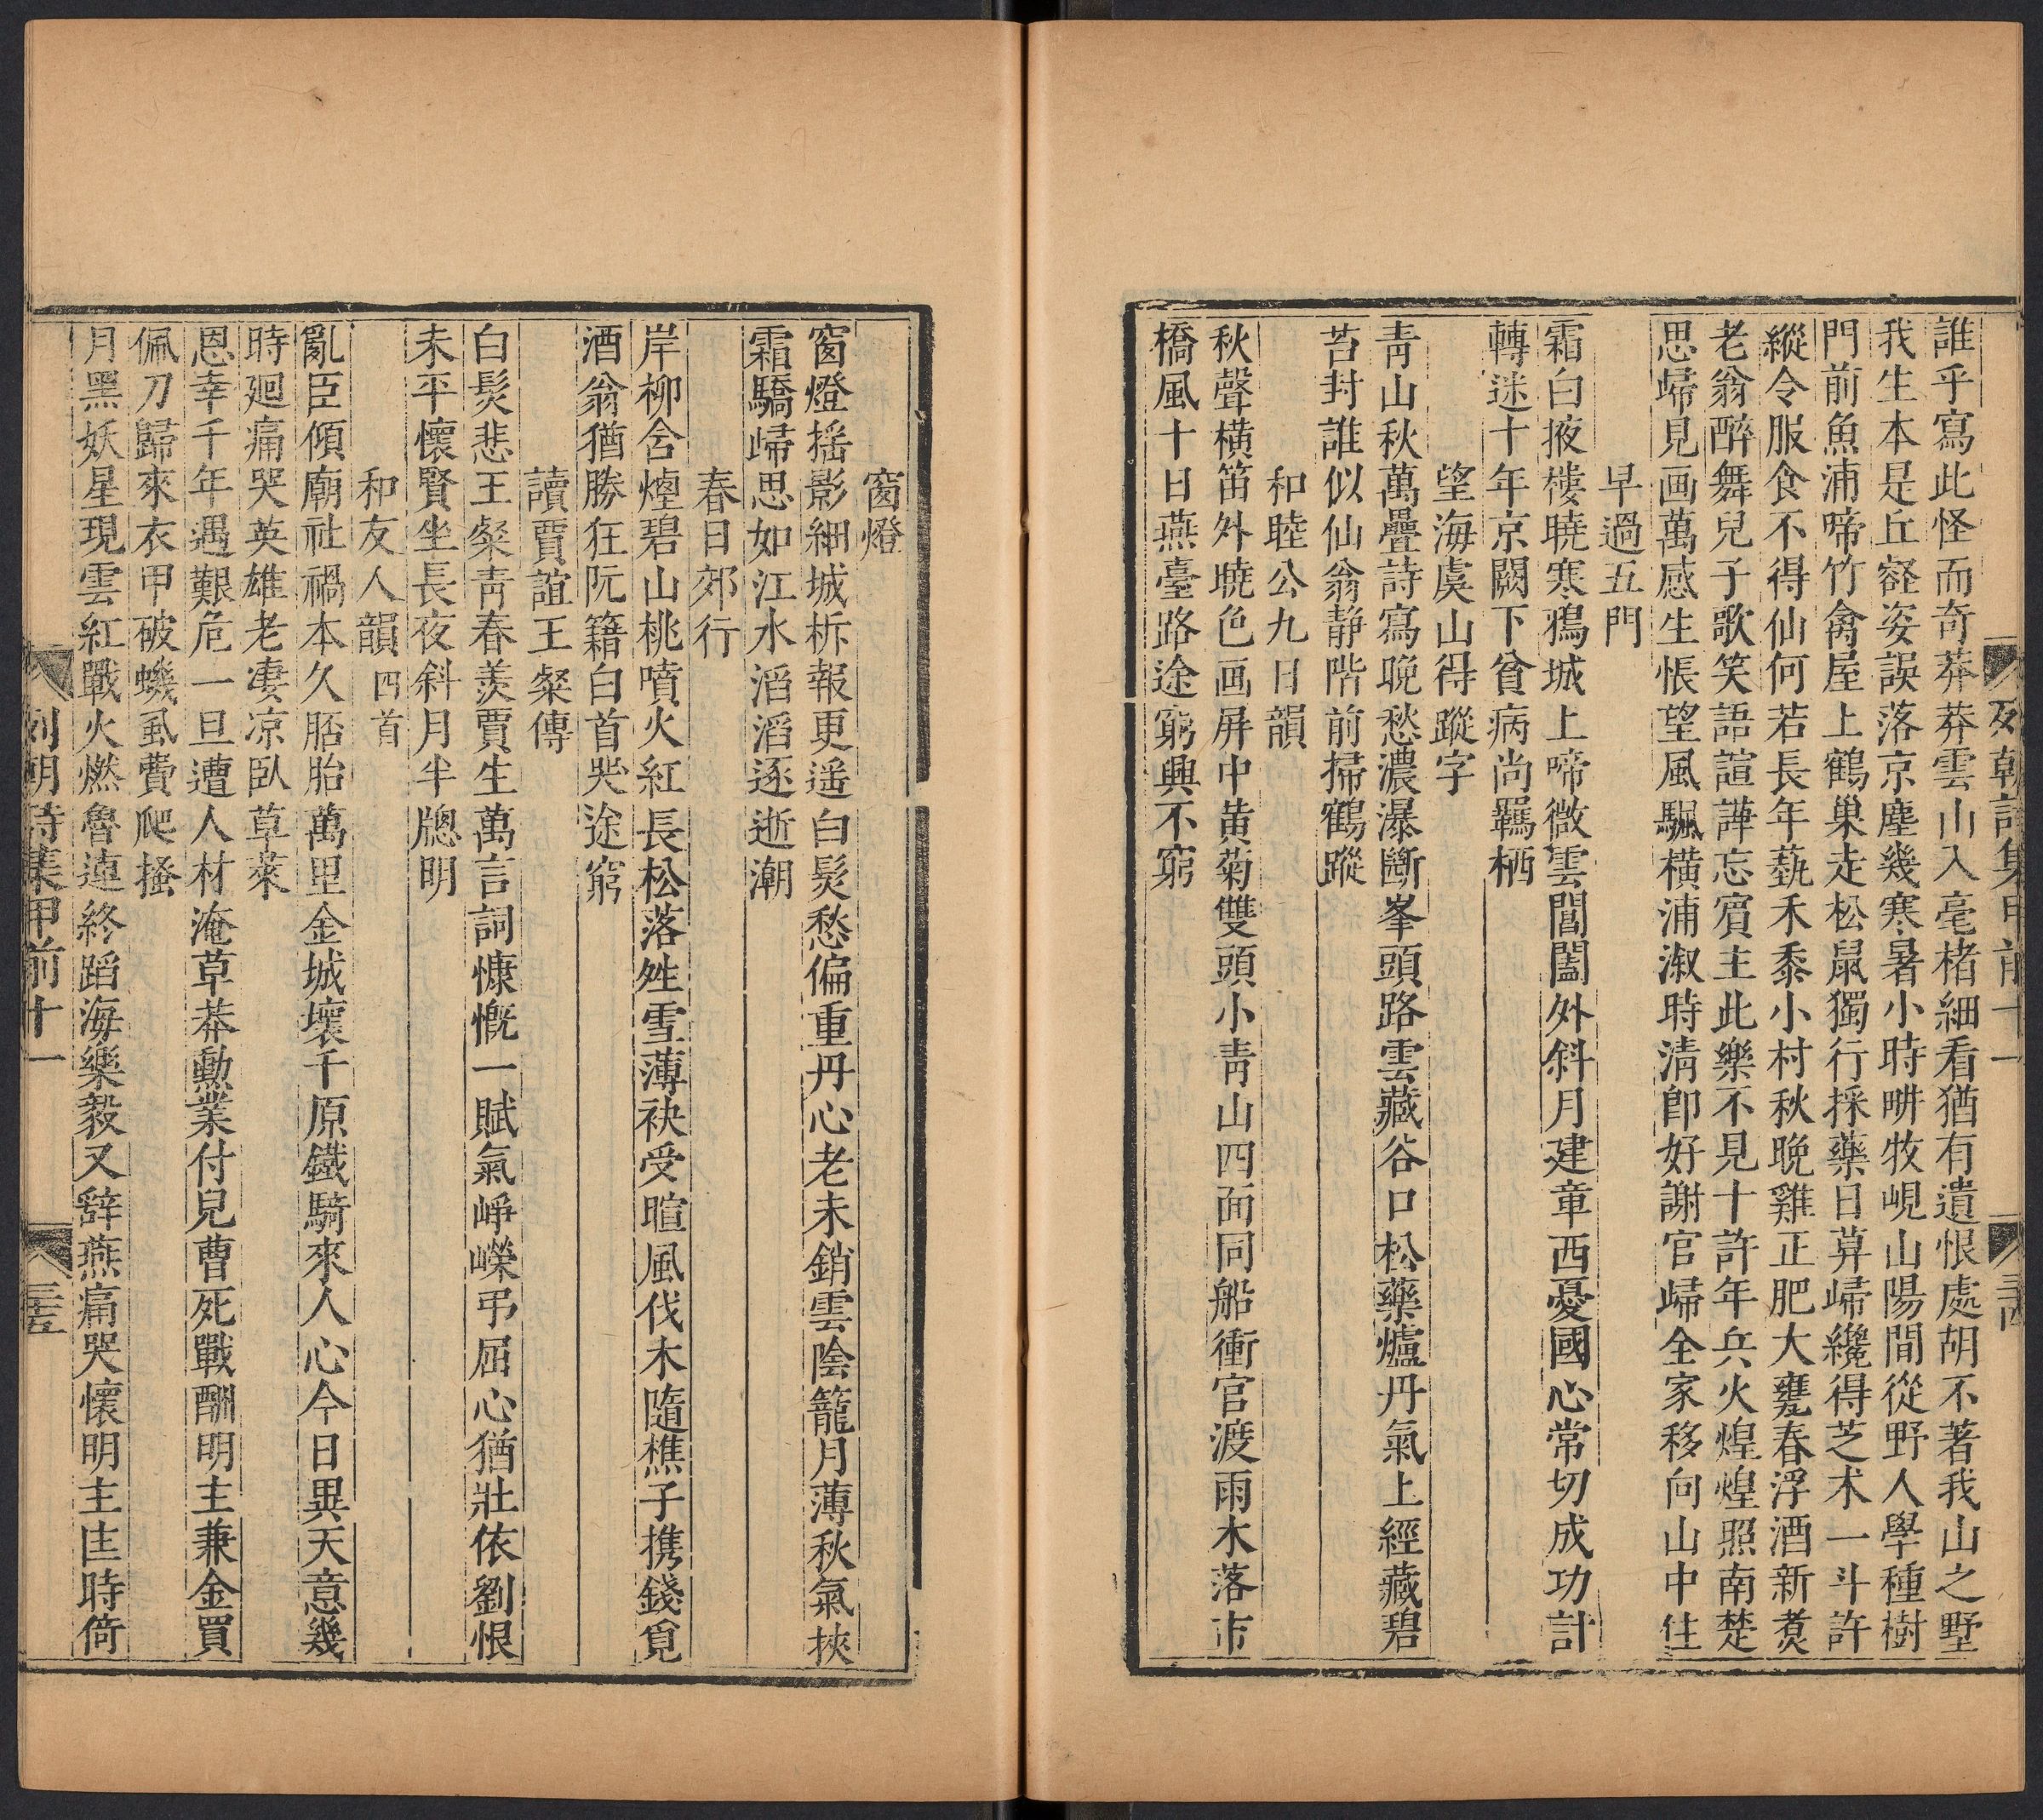 列朝詩集甲前十一
三四
誰乎寫此怪而奇莽莽雲山入毫楮細看猶有遺恨處胡不著我山之墅
我生本是丘壑姿誤落京塵幾寒暑小時畊牧峴山陽間從野人學種樹
門前魚浦啼竹禽屋上鶴巢走松鼠獨行採藥日萛歸纔得芝术一斗許
縱令服食不得仙何若長年蓺禾黍小村秋晚雞正肥大甕春浮酒新煑
老翁醉舞兒子歌笑語諠譁忘賓主此樂不見十許年兵火煌煌照南楚
思歸見画萬感生悵望風颿橫浦溆時淸卽好謝官歸全家移向山中住
早過五門
霜白掖樓曉寒鴉城上啼微雲閶闔外斜月建章西憂國心常切成功計
轉迷十年京闕下貧病尚羈栖
望海虞山得蹤字
靑山秋萬疊詩寫晚愁濃瀑斷峯頭路雲藏谷口松藥爐丹氣上經藏碧
苔封誰似仙翁静階前掃鶴蹤
和睦公九日韻
秋聲橫笛外曉色画屏中黄菊雙頭小靑山四面同船衝官渡雨木落市
橋風十日燕臺路途窮興不窮
窗燈
窗燈摇影細城柝報更遥白髮愁偏重丹心老未銷雲陰籠月薄秋氣挾
霜驕歸思如江水滔滔逐逝潮
春日郊行
岸柳含煙碧山桃噴火紅長松落甡雪薄袂受暄風伐木隨樵子携錢覓
酒翁猶勝狂阮籍白首哭途窮
讀賈誼王粲傳
白髮悲王粲青春羨賈生萬言詞慷慨一賦氣崢嶸弔屈心猶壯依劉恨
未平懷賢坐長夜斜月半牕明
和友人韻四首
亂臣傾廟社禍本久胚胎萬里金城壞千原鐵騎來人心今日異天意幾
時廻痛哭英雄老凄凉臥草萊
恩幸千年遇艱危一旦遭人材淹草莽勳業付兒曹死戰酬明主兼金買
佩刀歸來衣甲破蟣虱費爬搔
月黑妖星現雲紅戰火燃魯連終蹈海樂毅又辭燕痛哭懷明主匡時倚
列朝詩集甲前十一
三五